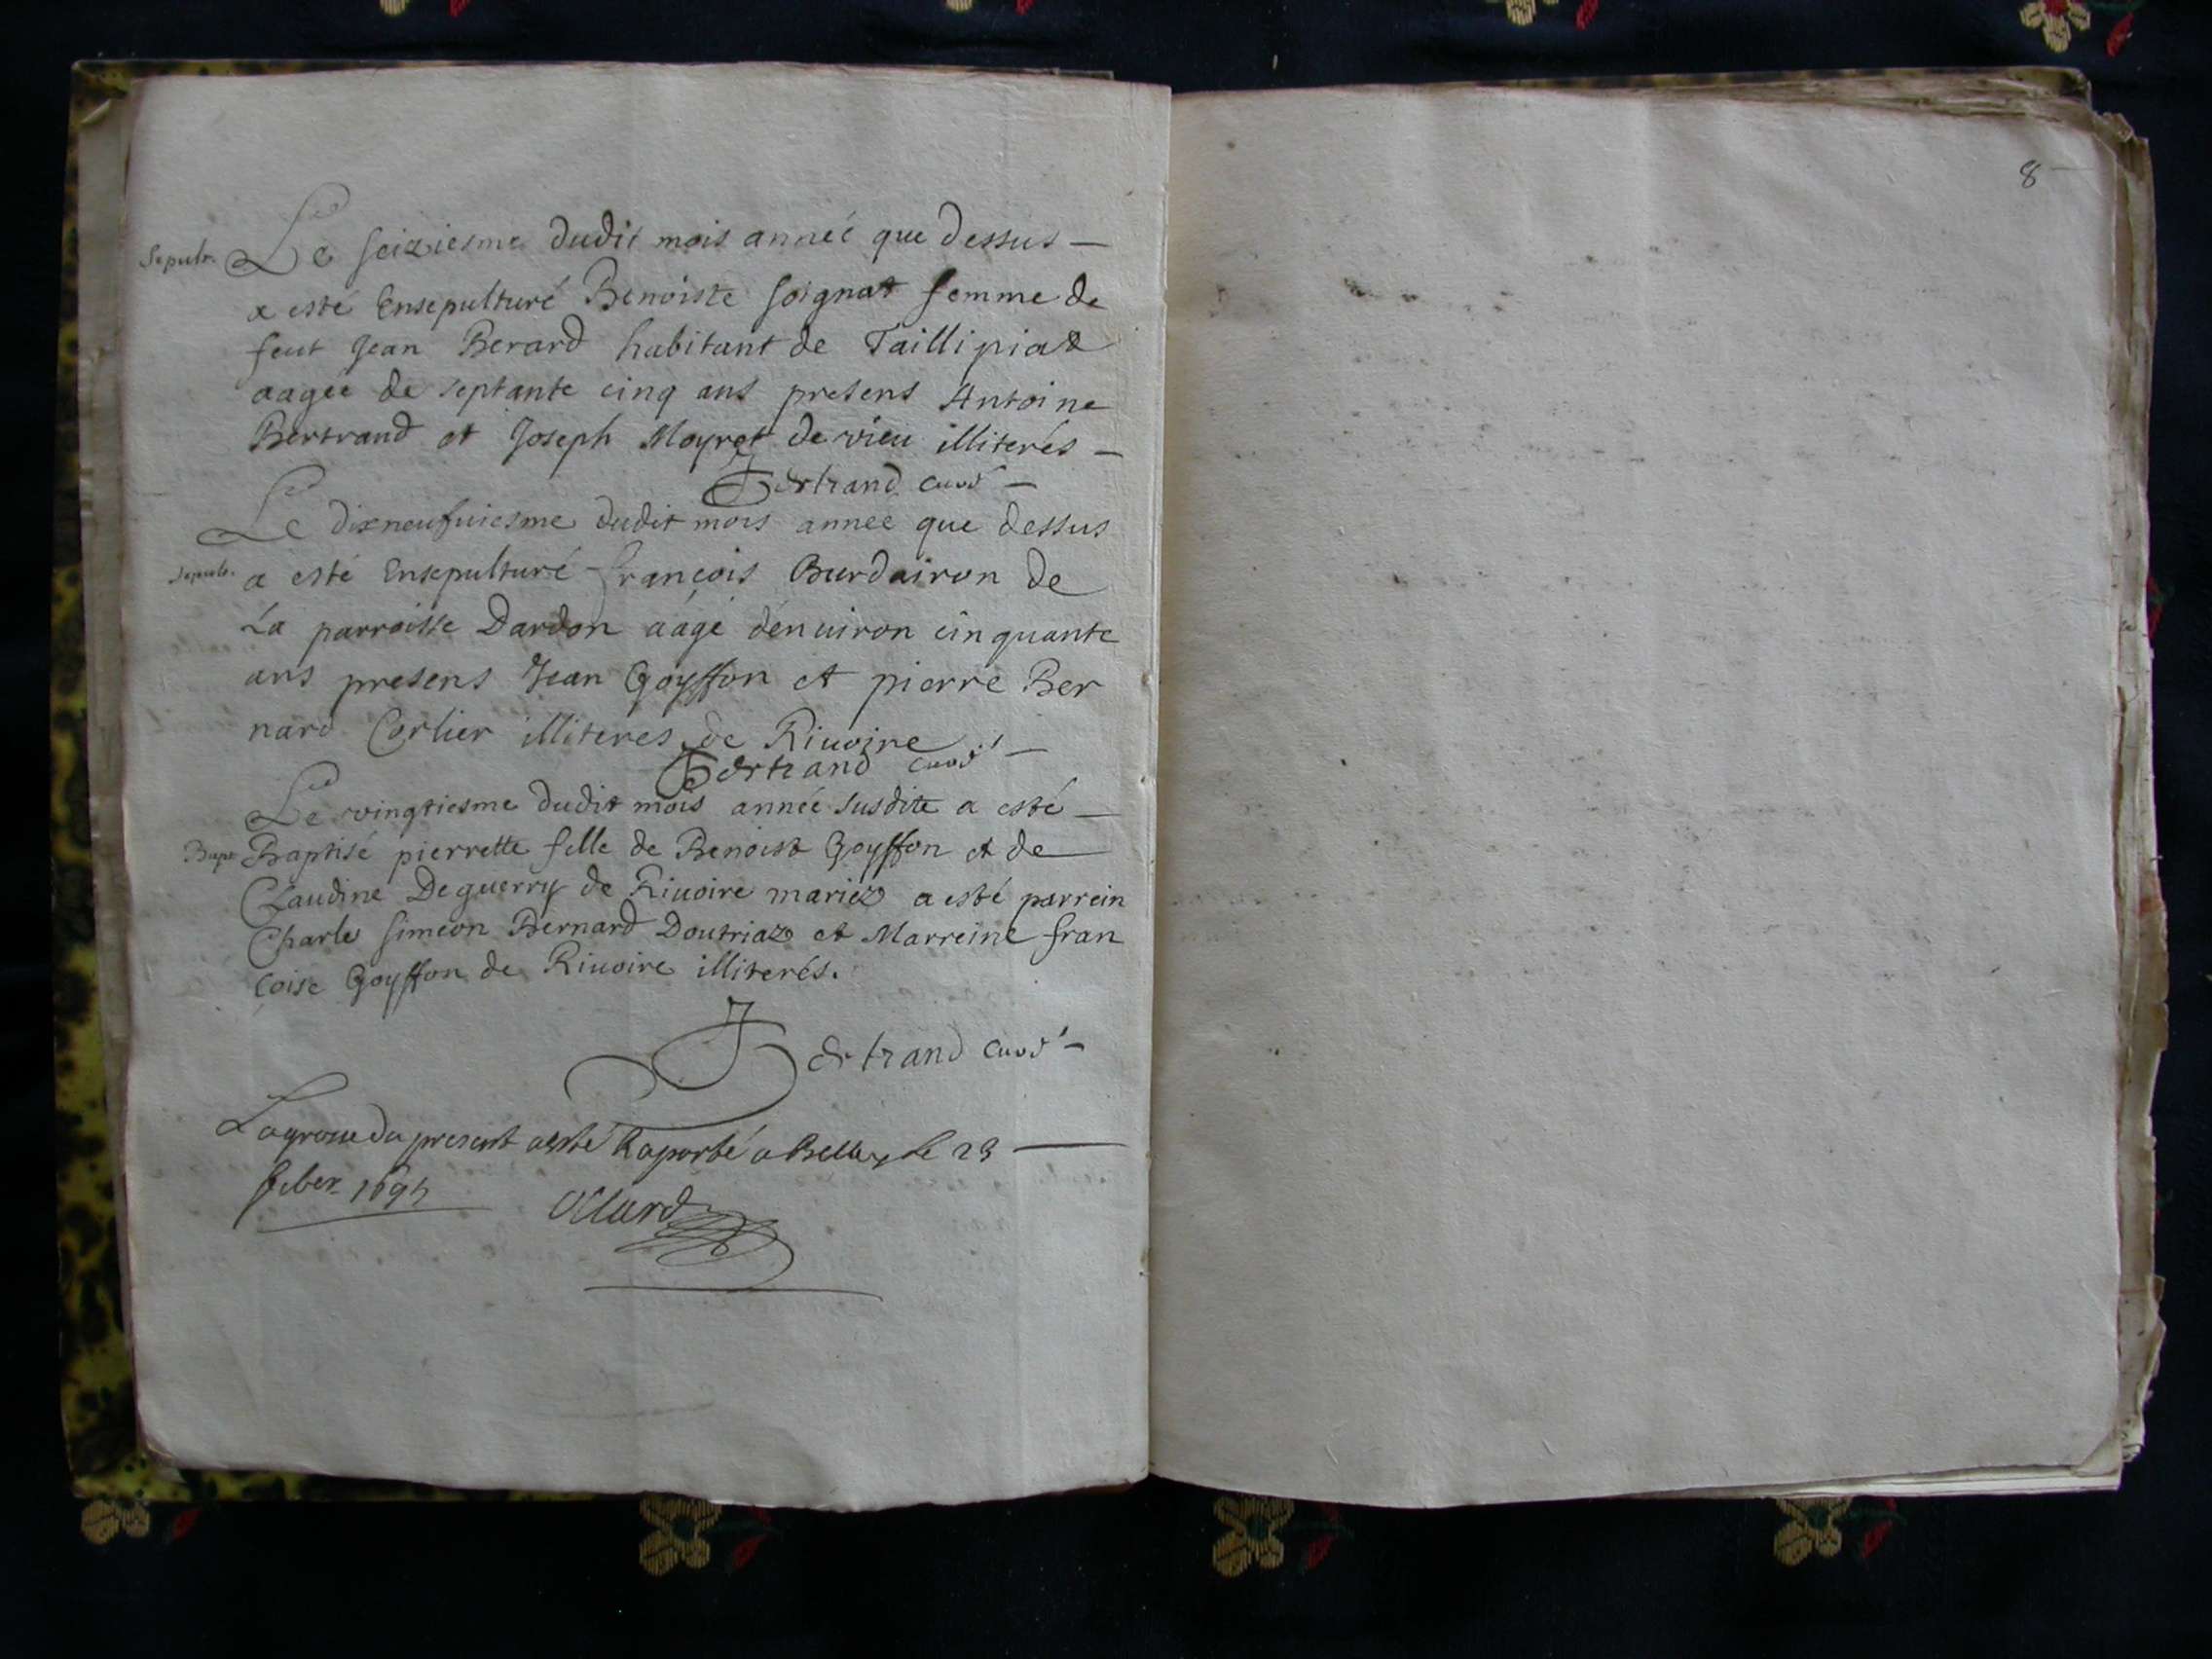 Sepultr. Le seiziesme dudit mois anneé que dessus —
a esté Ensepulturé Benoiste soignat femme de
feut Jean Berard habitant de Taillipiat
aageé de septante cinq ans presens Antoine
Bertrand et Joseph Moyret de vieu illiterés —
Bertrand curé —
Le dixneufuiesme dudit mois anneé que dessus
Sepultr. a esté Ensepulturé françois Burdairon de
La parroisse Dardon aágé dénuiron cinquante
ans presens Jean Goyffon et pierre Ber
nard Corlier illiteres de Riuoire
Bertrand curé —
Le vingtiesme dudit mois anneé susdite a esté —
Bapt Baptisé pierrette fille de Benoist Goyffon et de
Claudine Deguerry de Riuoire mariez a esté parrein
Charle simeon Bernard Doutriaz et Marreine fran
çoise Goyffon de Riuoire illiterés.
Bertrand curé —
La grosse du present a esté Raporté a Belley le 23 —
feber
8